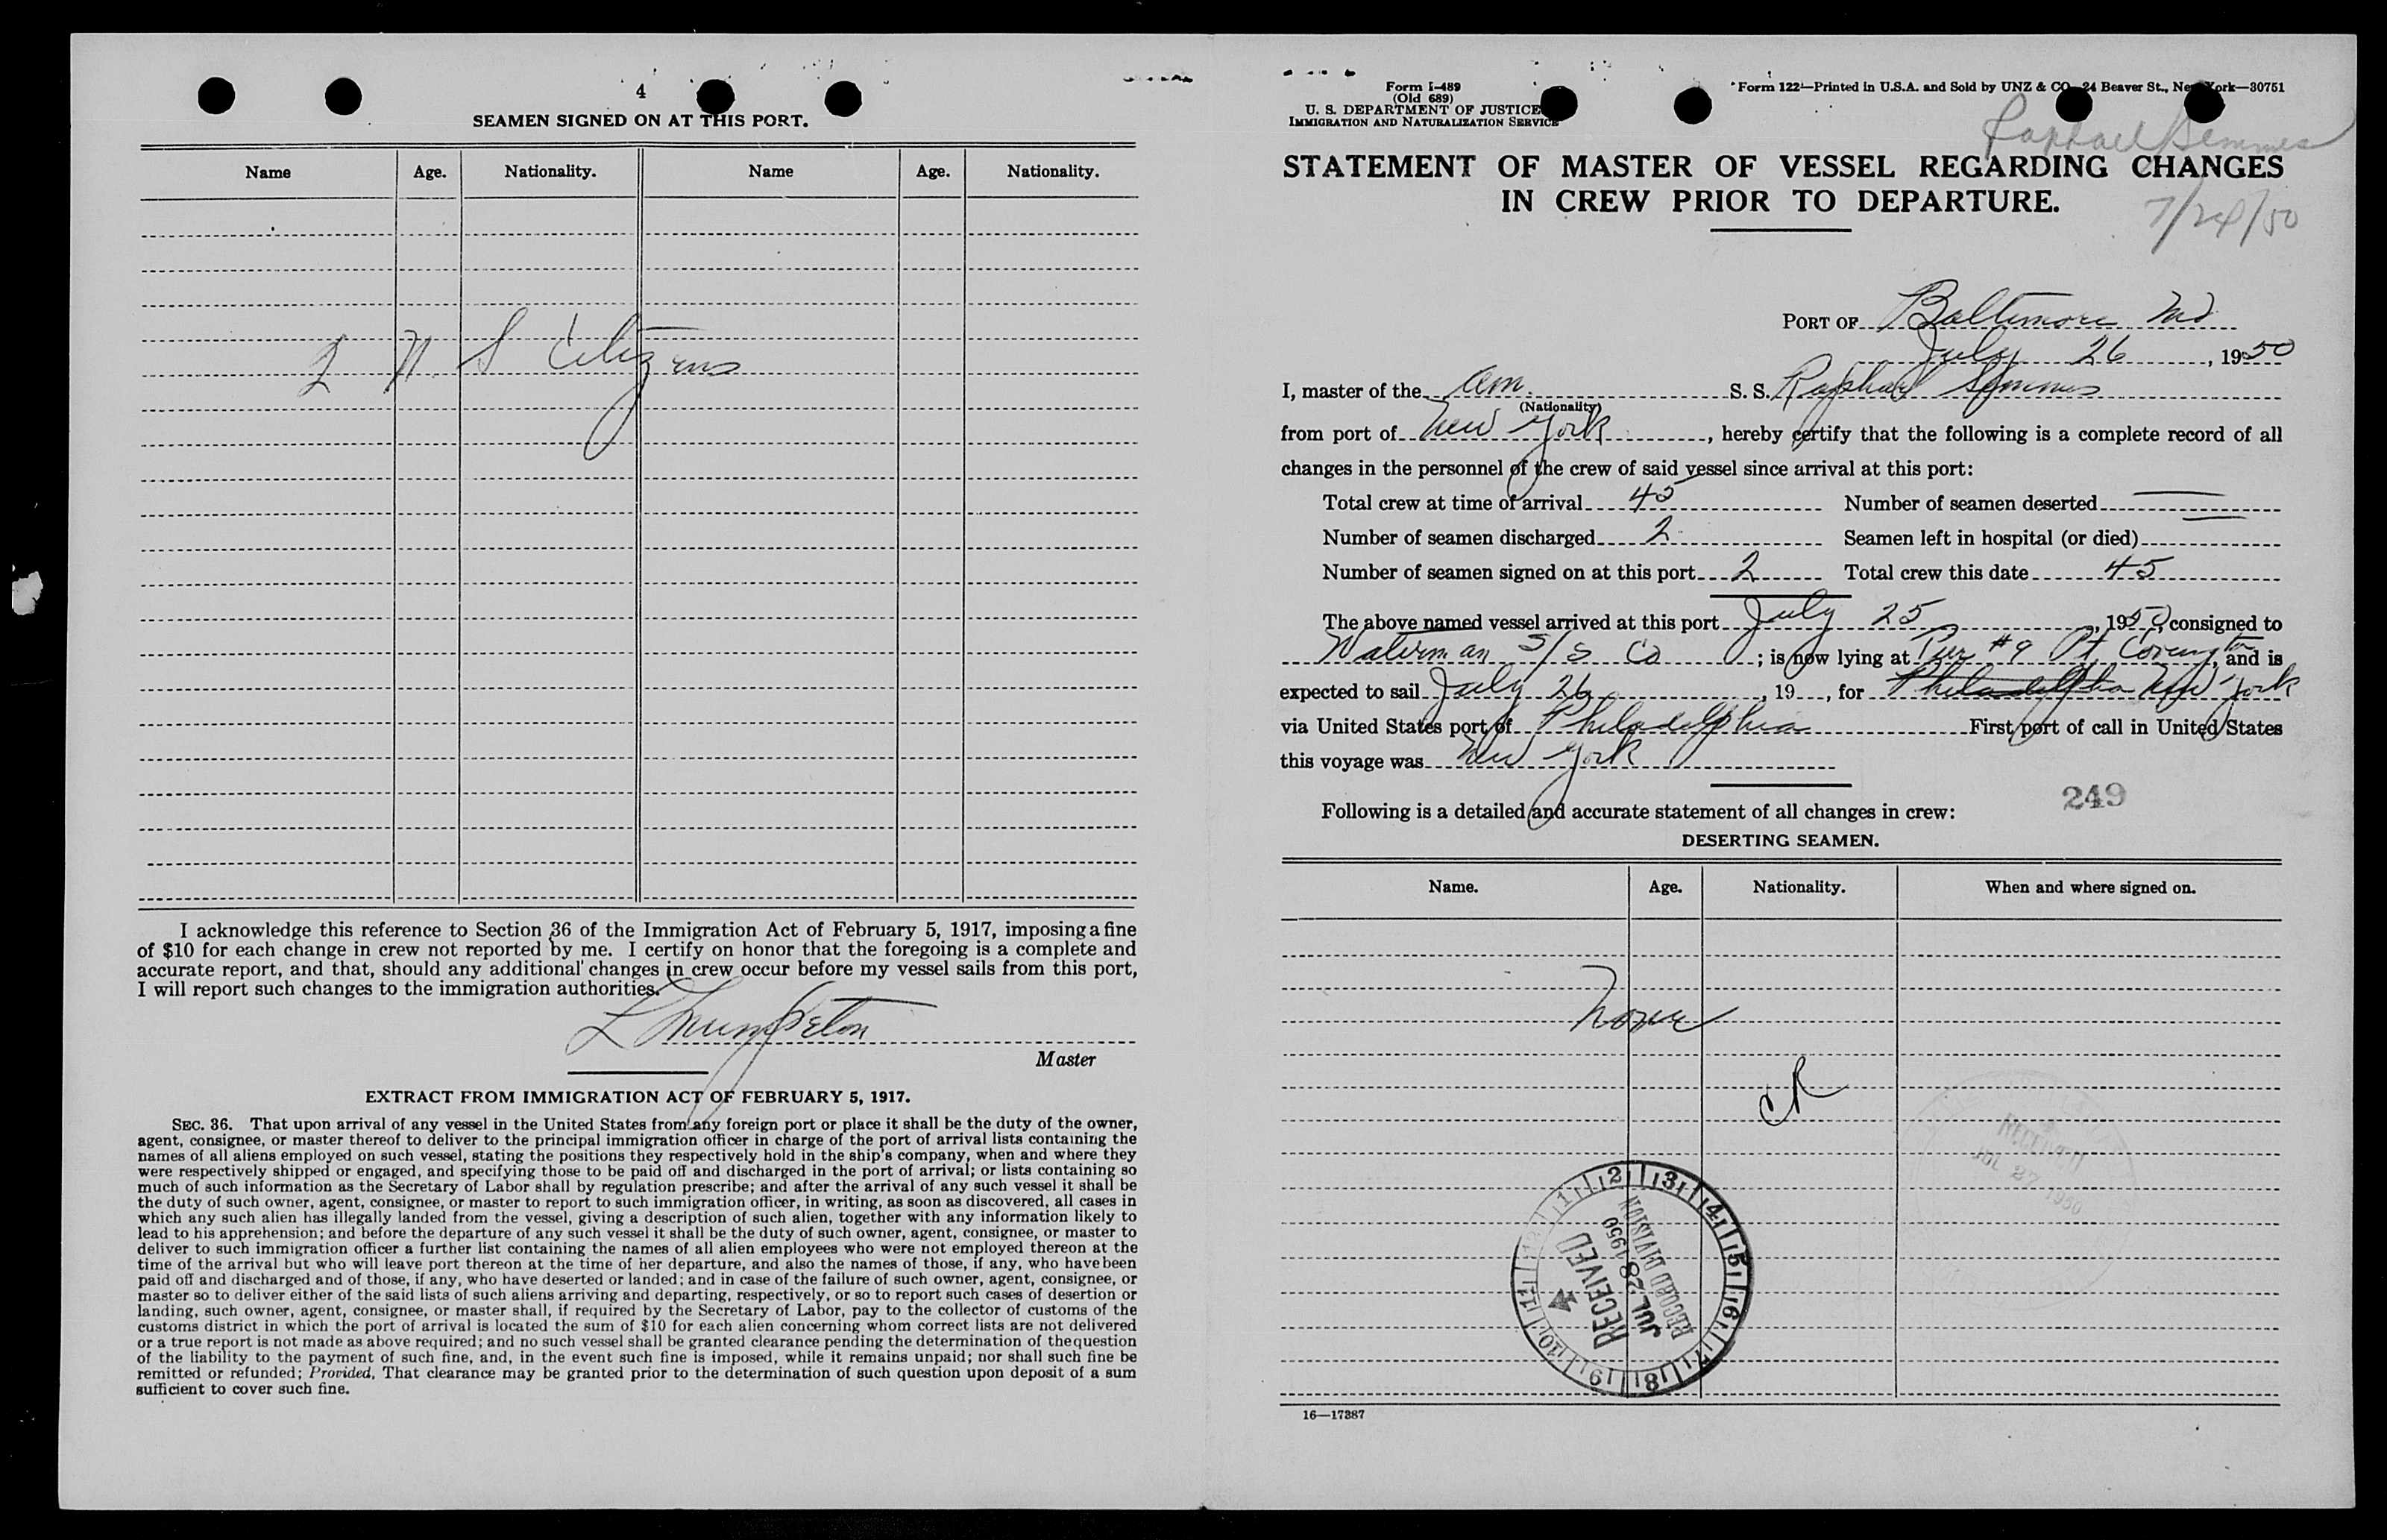 4
SEAMEN SIGNED ON AT THIS PORT.
Name Age. Nationality. Name Age. Nationality.
2 U S Citizens
I acknowledge this reference to Section 36 of the Immigration Act of February 5, 1917, imposing a fine
of $10 for each change in crew not reported by me. I certify on honor that the foregoing is a complete and
accurate report, and that, should any additional changes in crew occur before my vessel sails from this port,
I will report such changes to the immigration authorities.
Master
EXTRACT FROM IMMIGRATION ACT OF FEBRUARY 5, 1917.
SEC. 36. That upon arrival of any vessel in the United States from any foreign port or place it shall be the duty of the owner,
agent, consignee, or master thereof to deliver to the principal immigration officer in charge of the port of arrival lists containing the
names of all aliens employed on such vessel, stating the positions they respectively hold in the ship's company, when and where they
were respectively shipped or engaged, and specifying those to be paid off and discharged in the port of arrival; or lists containing so
much of such information as the Secretary of Labor shall by regulation prescribe; and after the arrival of any such vessel it shall be
the duty of such owner, agent, consignee, or master to report to such immigration officer, in writing, as soon as discovered, all cases in
which any such alien has illegally landed from the vessel, giving a description of such alien, together with any information likely to
lead to his apprehension; and before the departure of any such vessel it shall be the duty of such owner, agent, consignee, or master to
deliver to such immigration officer a further list containing the names of all alien employees who were not employed thereon at the
time of the arrival but who will leave port thereon at the time of her departure, and also the names of those, if any, who have been
paid off and discharged and of those, if any, who have deserted or landed; and in case of the failure of such owner, agent, consignee, or
master so to deliver either of the said lists of such aliens arriving and departing, respectively, or so to report such cases of desertion or
landing, such owner, agent, consignee, or master shall, if required by the Secretary of Labor, pay to the collector of customs of the
customs district in which the port of arrival is located the sum of $10 for each alien concerning whom correct lists are not delivered
or a true report is not made as above required; and no such vessel shall be granted clearance pending the determination of the question
of the liability to the payment of such fine, and, in the event such fine is imposed, while it remains unpaid; nor shall such fine be
remitted or refunded; Provided, That clearance may be granted prior to the determination of such question upon deposit of a sum
sufficient to cover such fine.
Form I-489
(Old 689)
U. S. DEPARTMENT OF JUSTICE
IMMIGRATION AND NATURALIZATION SERVICE
Form 122—Printed in U.S.A. and Sold by UNZ & CO. 24 Beaver St., New York—30751
Raphael Semmes
STATEMENT OF MASTER OF VESSEL REGARDING CHANGES
IN CREW PRIOR TO DEPARTURE.
7/24/50
PORT OF Baltimore Md
July 26, 1950
I, master of the Am. S. S. Raphael Semmes
(Nationality)
from port of New York, hereby certify that the following is a complete record of all
changes in the personnel of the crew of said vessel since arrival at this port:
Total crew at time of arrival 45 Number of seamen deserted —
Number of seamen discharged 2 Seamen left in hospital (or died) —
Number of seamen signed on at this port 2 Total crew this date 45
The above named vessel arrived at this port July 25, 1950, consigned to
Waterman S/S Co; is now lying at Pier #9 Pt Covington, and is
expected to sail July 26, 19 , for Philadelphia New York
via United States port of Philadelphia First port of call in United States
this voyage was New York
249
Following is a detailed and accurate statement of all changes in crew:
DESERTING SEAMEN.
Name. Age. Nationality. When and where signed on.
None
CR
RECEIVED
JUL 27 1950
1 2 3 4 5 6 7 8 9 10 11 12
RECEIVED
JUL 28 1950
RECORD DIVISION
16—17387